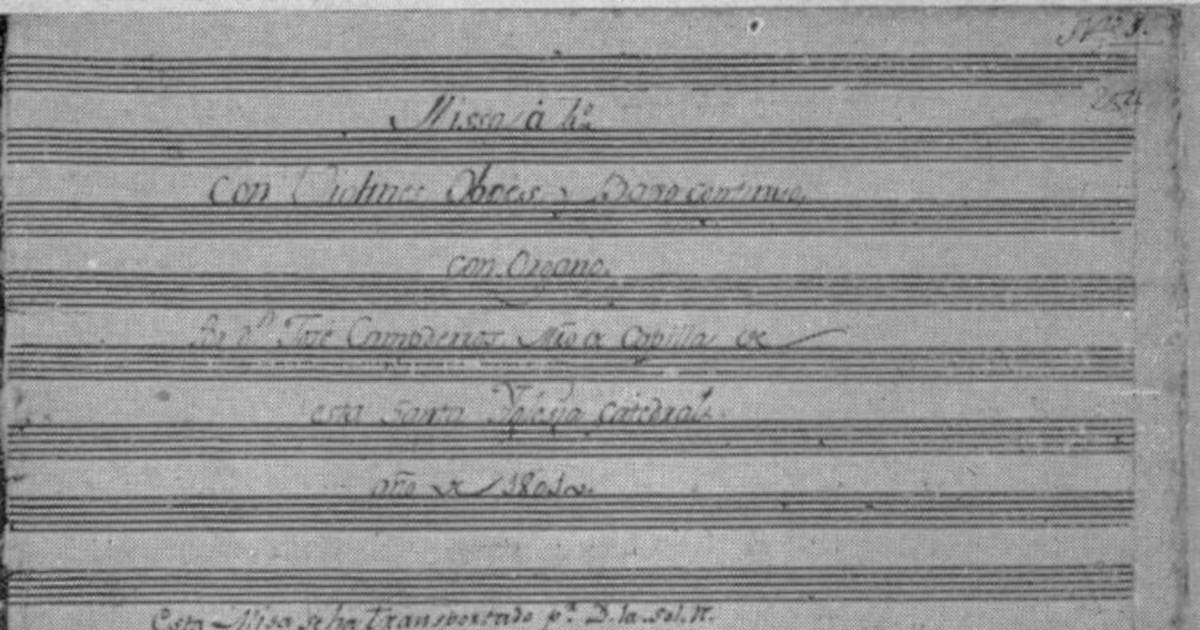 Missa à 4º
Con Violines Oboes y Bajo continuo,
con Organo.
De Dn José Campderros Mro de Capilla de
esta Santa Yglesia Catedral
año de 1801
Esta Misa se ha transportado pª D. la. sol. r.